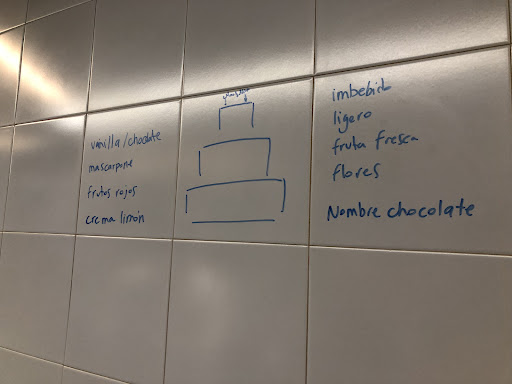 vainilla/chocolate
mascarpone
frutos rojos
crema limón
imbebido
ligero
fruta fresca
flores
Nombre chocolate